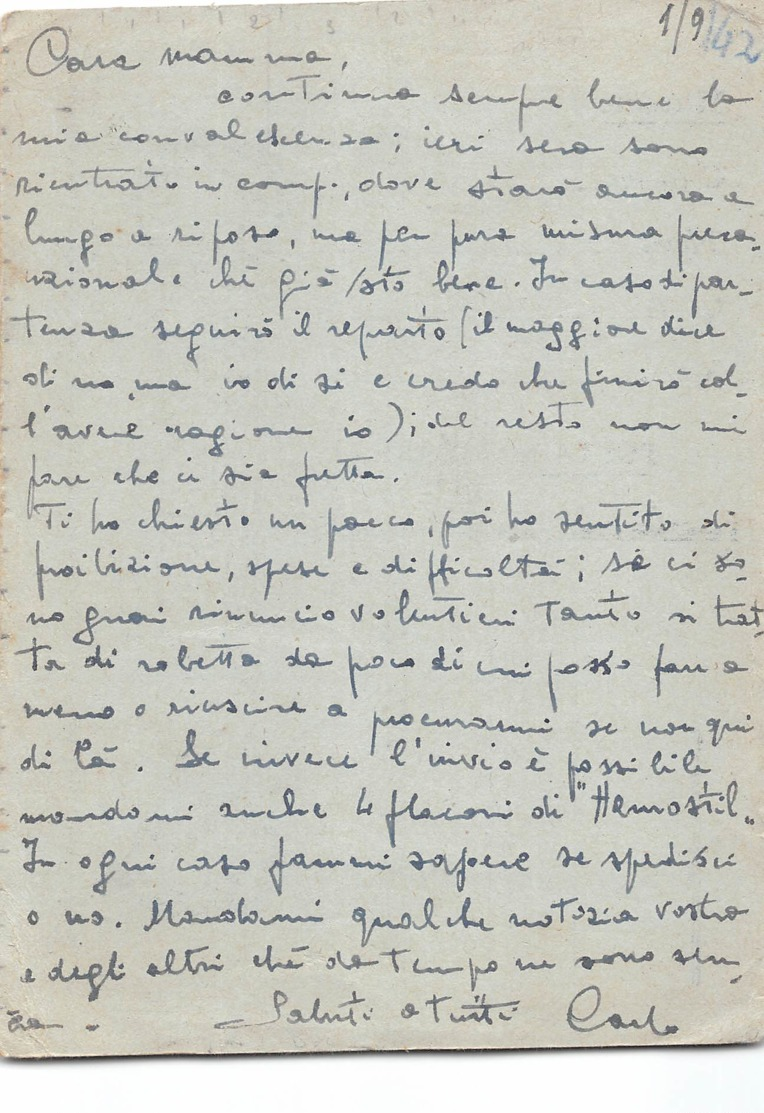 1/9/42
Cara mamma,
continua sempre bene la
mia convalescenza; ieri sera sono
rientrato in comp., dove starò ancora a
lungo a riposo, ma per pura misura preca-
uzionale chè già sto bene. In caso di par-
tenza seguirò il reparto (il maggiore dice
di no, ma io di si e credo che finirò col-
l'avere ragione io); del resto non mi
pare che ci sia fretta.
Ti ho chiesto un pacco, poi ho sentito di
proibizione, spese e difficoltà; se ci so-
no guai rinuncio volentieri tanto si trat-
ta di robetta da poco di cui posso fare a
meno o riuscire a procurarmi se non qui
di là. Se invece l'invio è possibile
mandami anche 4 flaconi di "Hemostil"
In ogni caso fammi sapere se spedisci
o no. Mandami qualche notizia vostra
e degli altri chè da tempo ne sono sen-
za. Saluti a tutti Carlo